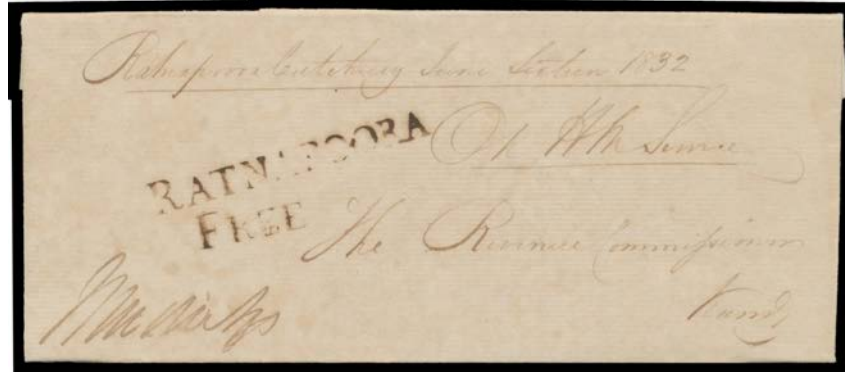 Ratnapoora Cutchery June Sixteen 1832
RATNAPOORA
FREE
On H M Service
The Revenue Commissioner
Kandy